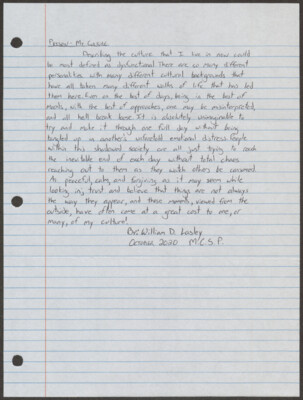 Describing the culture that I live in now could
be most defined as dysfunctional. There are so many different
personalities with many different cultural backgrounds that
have all taken many different walks of life that has led
them here. Even on the best of days, being in the best of
moods, with the best of approaches, one may be misinterpreted,
and all hell break loose. It is absolutely unimaginable to
try and make it through one full day without being
tangled up in another's unfounded emotional distress. People
within this shadowed society are all just trying to reach
the inevitable end of each day without total chaos
reaching out to them as they watch others be consumed.
As peaceful, calm, and forgiving as it may seem while
looking in, trust and believe that things are not always
the way they appear, and those moments, viewed from the
outside, have often come at a great cost to me, or
many, of my culture!
By: William D. Lasley
October 2020 M.C.S.P.